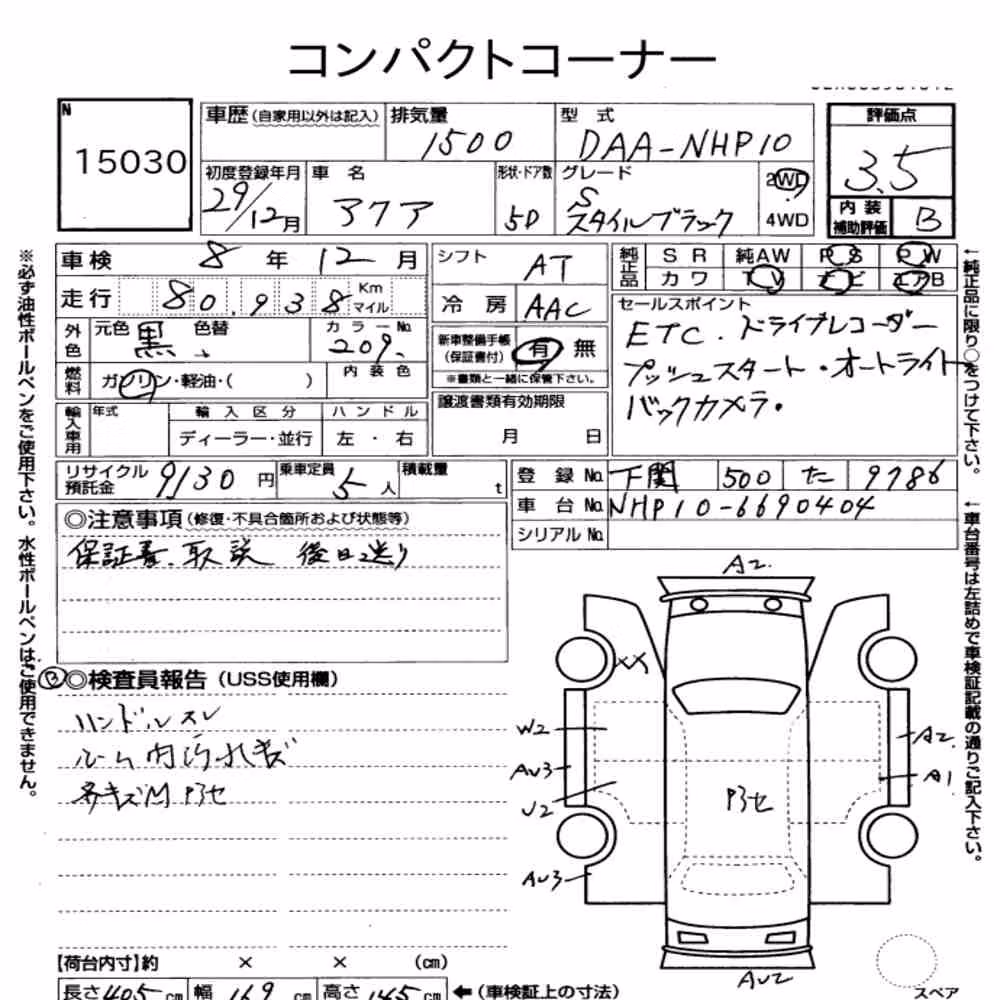 コンパクトコーナー
N
15030
車歴(自家用以外は記入)
排気量
1500
型式
DAA-NHP10
評価点
3.5
内装補助評価
B
初度登録年月
29/12月
車名
アクア
形状・ドア数
5D
グレード
S
スタイルブラック
2WD
4WD
車検
8年12月
走行
80,938
Km
マイル
シフト
AT
冷房
AAC
純正品
SR 純AW PS PW
カワ TV ナビ エアB
外色
元色 黒
色替
カラーNo.
209
燃料
ガソリン・軽油・( )
内装色
輸入車用
年式
輸入区分
ディーラー・並行
ハンドル
左・右
新車整備手帳
(保証書付)
有 無
※書類と一緒に保管下さい。
譲渡書類有効期限
月 日
セールスポイント
ETC. ドライブレコーダー
プッシュスタート・オートライト
バックカメラ.
リサイクル預託金
9130円
乗車定員
5人
積載量
t
登録No.
下関 500 た 9786
車台No.
NHP10-6690404
シリアルNo.
◎注意事項(修復・不具合箇所および状態等)
保証書、取説 後日送り
B ◎検査員報告(USS使用欄)
ハンドルスレ
ルーム内汚れキズ
各キズ凹
A2
XX
W2
AU3
U2
AU3
A2
A1
AU2
スペア
【荷台内寸】約 × × (cm)
長さ405cm 幅169cm 高さ145cm ←(車検証上の寸法)
※必ず油性ボールペンをご使用下さい。水性ボールペンはご使用できません。
←純正品に限り○をつけて下さい。
←車台番号は左詰めで車検証記載の通りご記入下さい。